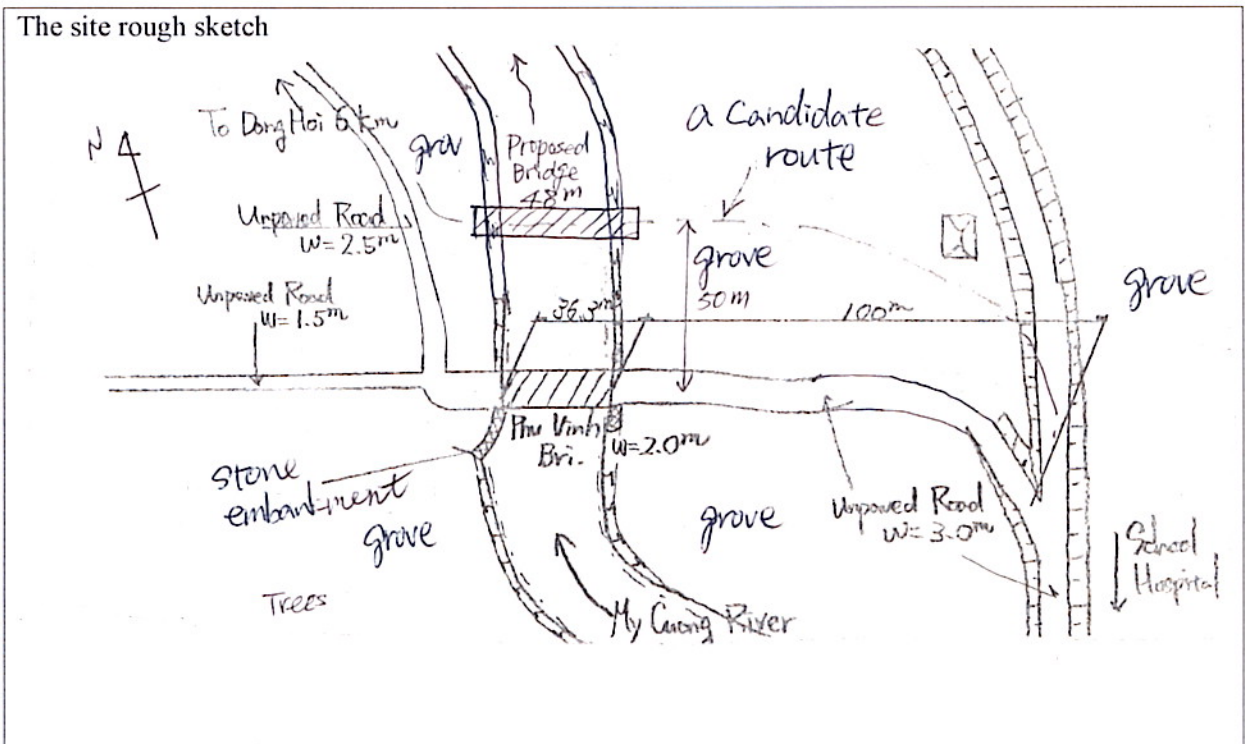 The site rough sketch
N
To Dong Hoi 6 km
grov
Proposed
Bridge
48m
a Candidate
route
Unpaved Road
W=2.5m
grove
50m
grove
Unpaved Road
W=1.5m
36.3m
100m
Phu Vinh
Bri.
W=2.0m
stone
embankment
grove
grove
Unpaved Road
W=3.0m
School
Hospital
Trees
My Cuong River